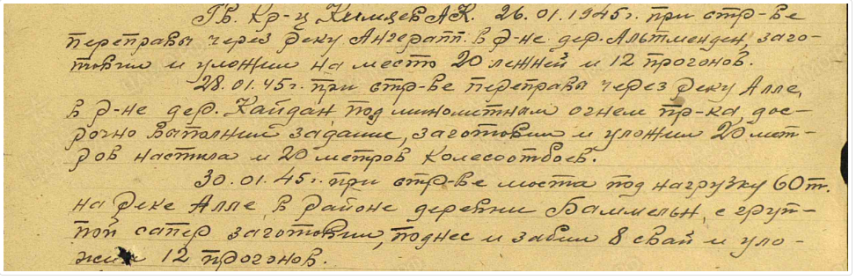 Гв. Кр-ц Кимяев А.К. 26.01.1945г. при стр-ве
переправы через реку Ангерапп в р-не дер. Альтменден, заго-
товил и уложил на место 20 лежней и 12 прогонов.
28.01.45г. при стр-ве переправы через реку Алле,
в р-не дер. Кайдан под минометным огнем пр-ка, дос-
рочно выполнил задание, заготовил и уложил 20 мет-
ров настила и 20 метров колесоотбоев.
30.01.45г. при стр-ве моста под нагрузку 60 т.
на реке Алле, в районе деревни Баммельн, с груп-
пой сапер заготовил, поднес и забил 8 свай и уло-
жил 12 прогонов.